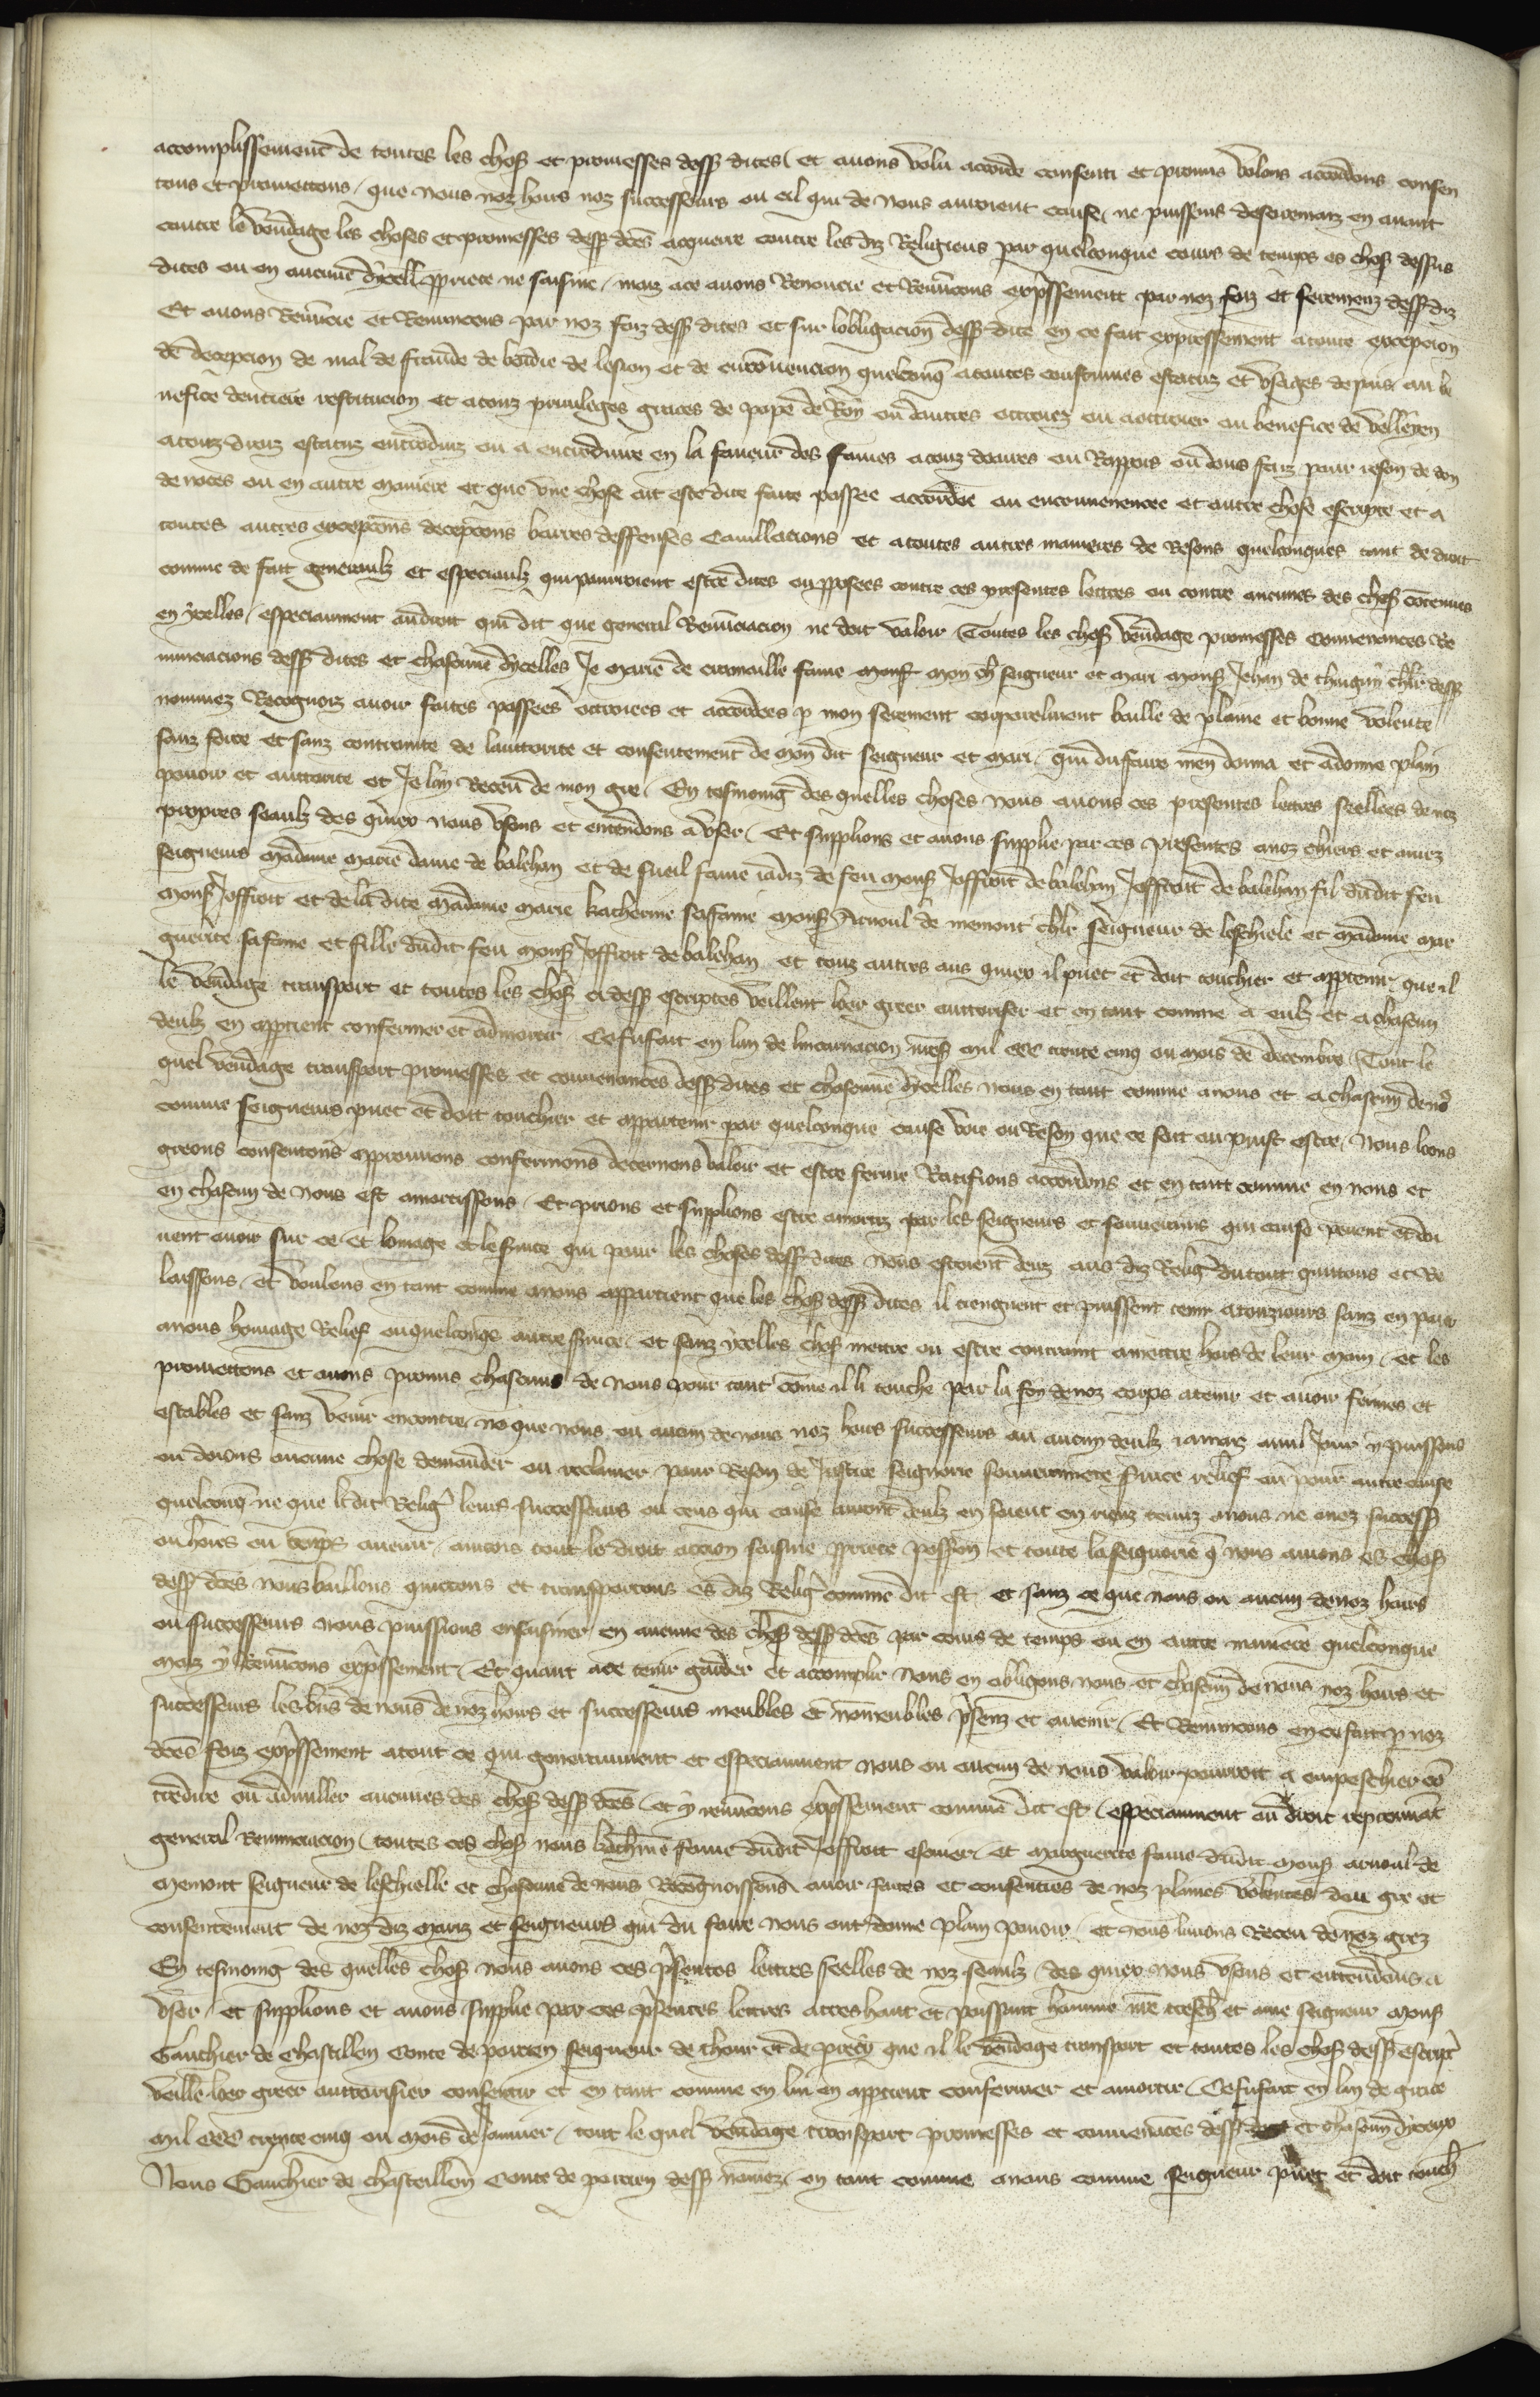 accomplissement de toutes les chos et promesses dess dites et auons volu acorde consenti et promis volons acordons consen
tons et promettons / que nous noz hoirs noz successeurs ou cil qui de nous auroient cause ne puissiens desoremaiz en auant
contre le vendage les choses et promesses dess dces acquerre contre les diz Religieus par quelconque cours de temps es chos dessus
dites ou en aucune dicell pprieté ne saisine / maiz a ce auons Renoncie et Renuncons expssement par noz foiz et seremenz dess diz
Et auons Renuncie et Renuncons par noz foiz dess dites et sur lobligacion dess dite en ce fait expressement a toute excepcion
de decepcion de mal de fraude de boidie de lesion et de enconuencion quelconq a toutes coustumes estatuz et vsages de pais au be
nefice dentiere restitucion et a touz priuileges graces de pape de Roy ou dautres ottroiez ou a ottroier au benefice de velleyen
a touz dieuz estatuz entroduiz ou a entroduire en la faueur des fames a touz doaires ou Rappors ou dons faiz pour reson de don
de noces ou en autre maniere et que vne chose ait este dite faite passee accordee ou enconuenencee et autre chose escripte et a
toutes autres excepcons decepcons barres deffenses Cauillacions et a toutes autres manieres de Resons quelconques tant de droit
comme de fait generaulz et especiaulz qui pourroient estre dites ou pposees contre ces presentes lettres ou contre aucunes des chos cotenues
en ycelles / especiaument au droit qui dit que general Renunciacion ne doit valoir Toutes les chos vendage promesses conuenances Re
nunciacions dess dites et chascune dycelles Je marie de fame mons mon ch seigneur et mari mons Jehan de chlr dess
nommez Recognois auoir faites passees ottroiees et accordees p mon serement corporelment baille de plaine et bonne volente
sanz force et sanz contrainte de lauttorite et consentement de mon dit seigneur et mari / qui du faire men donna et a donne plain
pouoir et auttorite et Je lay Receu de mon gre / En tesmoing des quelles choses nous auons ces presentes lettres seellees de noz
propres seaulz des quiex nous vsons et entendons a vser / Et supplions et auons supplie par ces presentes a noz chiers et amez
seigneurs madame marie dame de balehan et de sueil fame iadiz de feu mons Joffroit de balehan Joffroit de balehan fil dudit feu
mons Joffroit et de la dite madame marie katherine sa fame mons Arnoul de chlr seigneur de leschiele et madame mar
guerite sa fame et fille dudit feu mons Joffroit de balehan et touz autres aus quiex il puet et doit touchier et apptenir que il
le vendage transport et toutes les chos ci dess escriptes veillent loer greer auttoriser et en tant comme a eulz et a chascun
deulz en apptient confermer et admortir Ce fu fait en lan de lincarnacion nres mil ccc trente cinq ou mois de decembre Tout le
quel vendage transport promesses et conuenances dess dites et chascune dycelles nous en tant comme a nous et a chascun de nos
comme seigneurs puet et doit touchier et appartenir par quelconque cause voie ou Reson que ce soit ou puist estre / Nous loons
greons consentons approuuons confermons decernons valoir et estre ferme Ratifions accordons et en tant comme en nous et
en chascun de nous est amortissons / Et prions et supplions estre amortiz par les seigneurs et souuerains qui cause peuent et doi
uent auoir sur ce Et lomage et le suice qui pour les choses dess dites nous estoient deuz aus diz Relig du tout quittons et Re
laissons / et voulons en tant comme a nous appartient que les chos dess dites il tiengnent et puissent tenir a touziours sanz en paier
a nous homage Relief ou quelconqs autre suice et sanz ycelles chos mettre ou estre contraint a mettre hors de leur main / et les
promettons et auons promis chascuns de nous pour tant come il li touche par la foy de noz corps a tenir et auoir fermes et
estables et sanz venir encontre ne que nous ou aucun de nous noz hoirs successeurs ou aucun deulz iamaiz a nul Jour y puissons
ou doions aucune chose demander ou reclamer pour Reson de Justice seignorie souuerainete suice relief ou pour autre cause
quelconq ne que li dit Relig leurs successeurs ou ceus qui cause auront deulz en soient en riens tenuz a nous ne a noz success
ou hoirs ou temps auenir / aincois tout le droit accion saisine pprieté possession et toute la seignorie q nous auons es chos
dess dces nous baillons quittons et transportons es diz Relig comme dit est et sanz ce que nous ou aucun de noz hoirs
ou successeurs nous puissions ensaisiner en aucune des chos dess dces par cours de temps ou en autre maniere quelconque
maiz y renuncons expssement / Et quant a ce tenir garder et accomplir nous en obligons nous et chascun de nous noz hoirs et
successeurs les biens de nous de noz hoirs et successeurs meubles et nomeubles psenz et auenir / Et Renuncons en ce fait p noz
dces foiz expssement a tout ce qui generaument et especiaument nous ou aucun de nous valoir pourroit a empeschier co
tredire ou adnuller aucunes des chos dess dces / et y renuncons expssement comme dit est / especiaument au droit repreuuat
general Renunciacion / toutes ces chos nous katherine fame dudit Joffroit escuier et marguerite fame dudit mons arnoul de
seigneur de leschielle et chascune de nous Recognoissons auoir faites et consenties de noz plaines volentes dou gre et
consentement de noz diz mariz et seigneurs qui du faire nous ont donne plain pouoir et nous lauons Receu de noz grez
En tesmoing des quelles chos nous auons ces psentes lettres seelles de noz seaulz / des quiex nous vsons et entendons a
vser / et supplions et auons supplie par ces psentes lettres a tres haut et puissant homme nre tresch et ame seigneur mons
Gauchier de Chastillon conte de porcien seigneur de thour et de precy que il le vendage transport et toutes les chos dess escript
veille loer greer auttorisier consentir et en tant comme en lui en apptient confermer et amortir Ce fu fait en lan de grace
mil ccc trente cinq ou mois de Januier / tout le quel vendage transport promesses et conuenaces dess et chascun diceux
Nous Gauchier de chasteillon conte de porcien dess nomez en tant comme a nous comme seigneur puet et doit touch